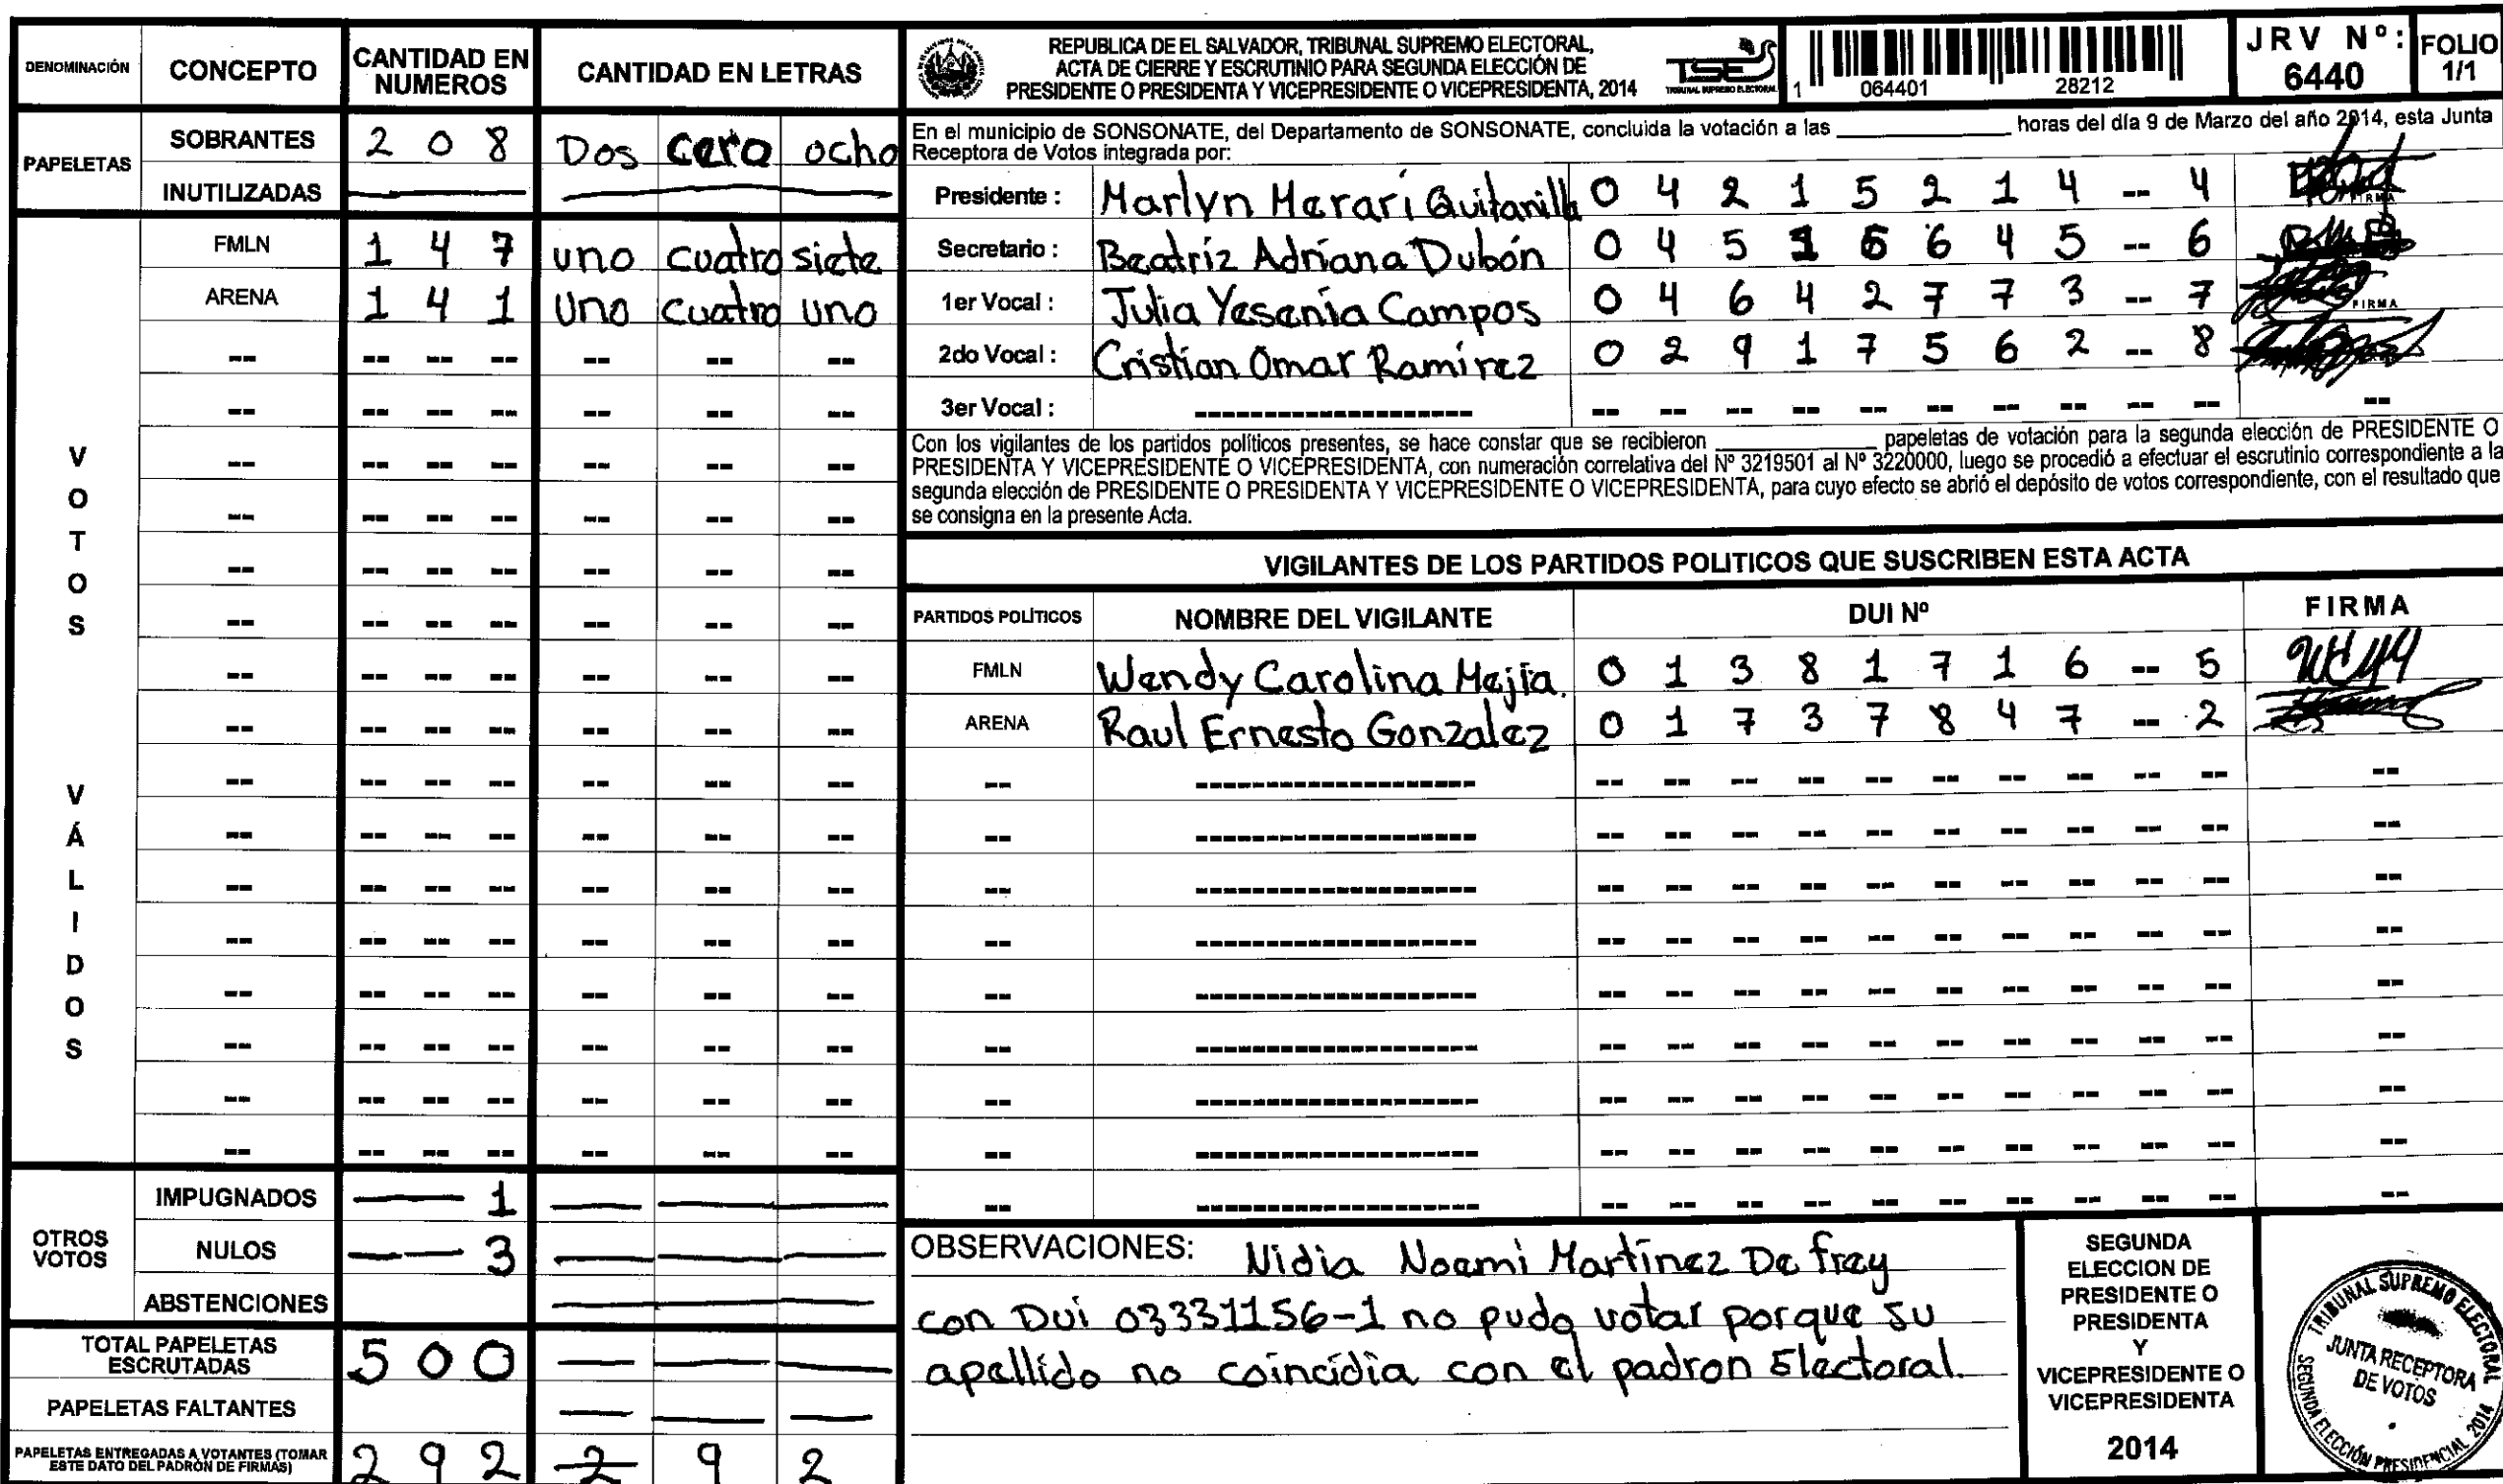 DENOMINACIÓN CONCEPTO CANTIDAD EN NUMEROS CANTIDAD EN LETRAS
PAPELETAS
SOBRANTES 2 0 8 Dos cero ocho
INUTILIZADAS
VOTOS VÁLIDOS
FMLN 1 4 7 uno cuatro siete
ARENA 1 4 1 uno cuatro uno
OTROS VOTOS
IMPUGNADOS 1
NULOS 3
ABSTENCIONES
TOTAL PAPELETAS ESCRUTADAS 5 0 0
PAPELETAS FALTANTES
PAPELETAS ENTREGADAS A VOTANTES (TOMAR ESTE DATO DEL PADRÓN DE FIRMAS) 2 9 2 2 9 2
REPUBLICA DE EL SALVADOR, TRIBUNAL SUPREMO ELECTORAL,
ACTA DE CIERRE Y ESCRUTINIO PARA SEGUNDA ELECCIÓN DE
PRESIDENTE O PRESIDENTA Y VICEPRESIDENTE O VICEPRESIDENTA, 2014
TSE
TRIBUNAL SUPREMO ELECTORAL
1 064401 28212
JRV Nº: 6440
FOLIO 1/1
En el municipio de SONSONATE, del Departamento de SONSONATE, concluida la votación a las ____________ horas del día 9 de Marzo del año 2014, esta Junta
Receptora de Votos integrada por:
Presidente : Marlyn Merari Quitanilla 0 4 2 1 5 2 1 4 -- 4
Secretario : Beatriz Adriana Dubón 0 4 5 1 6 6 4 5 -- 6
1er Vocal : Julia Yesenia Campos 0 4 6 4 2 7 7 3 -- 7 FIRMA
2do Vocal : Cristian Omar Ramirez 0 2 9 1 7 5 6 2 -- 8
3er Vocal : --------------------
Con los vigilantes de los partidos políticos presentes, se hace constar que se recibieron ____________ papeletas de votación para la segunda elección de PRESIDENTE O
PRESIDENTA Y VICEPRESIDENTE O VICEPRESIDENTA, con numeración correlativa del Nº 3219501 al Nº 3220000, luego se procedió a efectuar el escrutinio correspondiente a la
segunda elección de PRESIDENTE O PRESIDENTA Y VICEPRESIDENTE O VICEPRESIDENTA, para cuyo efecto se abrió el depósito de votos correspondiente, con el resultado que
se consigna en la presente Acta.
VIGILANTES DE LOS PARTIDOS POLITICOS QUE SUSCRIBEN ESTA ACTA
PARTIDOS POLÍTICOS NOMBRE DEL VIGILANTE DUI Nº FIRMA
FMLN Wendy Carolina Mejia. 0 1 3 8 1 7 1 6 -- 5
ARENA Raul Ernesto Gonzalez 0 1 7 3 7 8 4 7 -- 2
OBSERVACIONES: Nidia Noemi Martinez De fray
con Dui 03331156-1 no pudo votar porque su
apellido no coincidia con el padron Electoral.
SEGUNDA
ELECCION DE
PRESIDENTE O
PRESIDENTA
Y
VICEPRESIDENTE O
VICEPRESIDENTA
2014
TRIBUNAL SUPREMO ELECTORAL
JUNTA RECEPTORA
DE VOTOS
SEGUNDA ELECCIÓN PRESIDENCIAL 2014